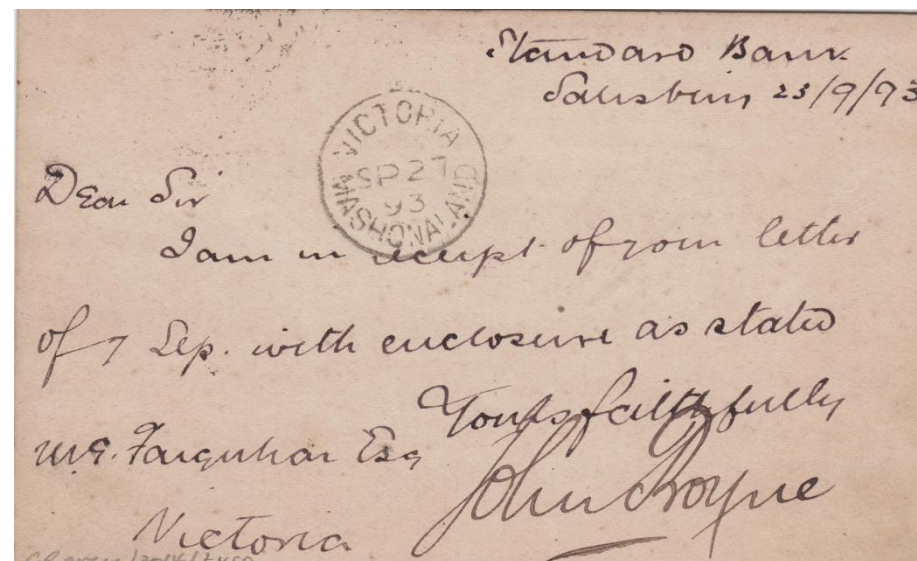 Standard Bank
Salisbury 23/9/93
VICTORIA
SP 27
93
MASHONALAND
Dear Sir
I am in receipt of your letter
of 7 Sep. with enclosure as stated
Yours faithfully
Farquhar Esq
John
Victoria